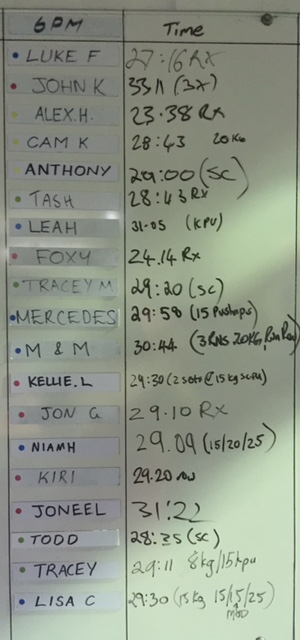 6PM Time
LUKE F 27:16 RX
JOHN K 33 11 (3X)
ALEX.H. 23.38 RX
CAM K 28:43 20KG
ANTHONY 29:00 (SC)
TASH 28:43 RX
LEAH 31-05 (KPU)
FOXY 24.14 RX
TRACEY M 29:20 (SC)
MERCEDES 29:58 (15 Pushups)
M & M 30:44 (3 RNS 20KG,
KELLIE.L 29:30 (2 sets @ 15 kg
JON G 29.10 RX
NIAMH 29.09 (15/20/25)
KIRI 29.20
JONEEL 31:22
TODD 28:35 (SC)
TRACEY 29:11 8kg/15kpu
LISA C 29:30 (15kg 15/15/25)